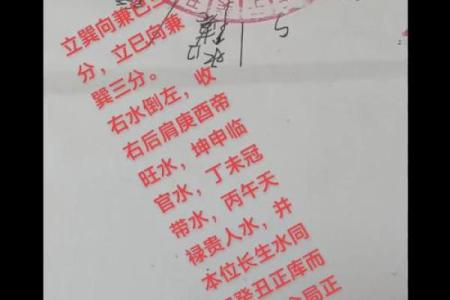 立巽向兼巳
分，立巳向兼
巽三分。
右水倒左，收
右后肩庚酉帝
旺水，坤申临
官水，丁未冠
带水，丙午天
禄贵人水，并
本位长生水同
癸丑正库而
局正
水口